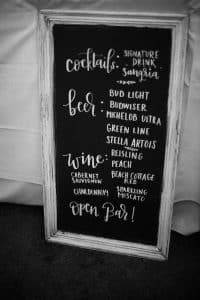 cocktails: SIGNATURE
DRINK
sangria
beer: BUD LIGHT
BUDWISER
MICHELOB ULTRA
GREEN LINE
STELLA ARTOIS
wine: REISLING
PEACH
CABERNET SAUVIGNON
BEACH COTTAGE RED
CHARDONNAY
SPARKLING MOSCATO
open Bar!